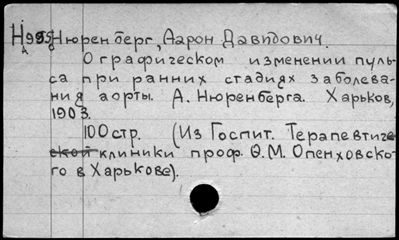 Н 995 Нюренберг, Аарон Давидович.
А
О графическом изменении пуль-
са при ранних стадиях заболева-
ния аорты. А. Нюренберга. Харьков,
1903.
100 стр. (Из Госпит. Терапевтиче
ской клиники проф. Ѳ.М. Опенховско-
го в Харькове).